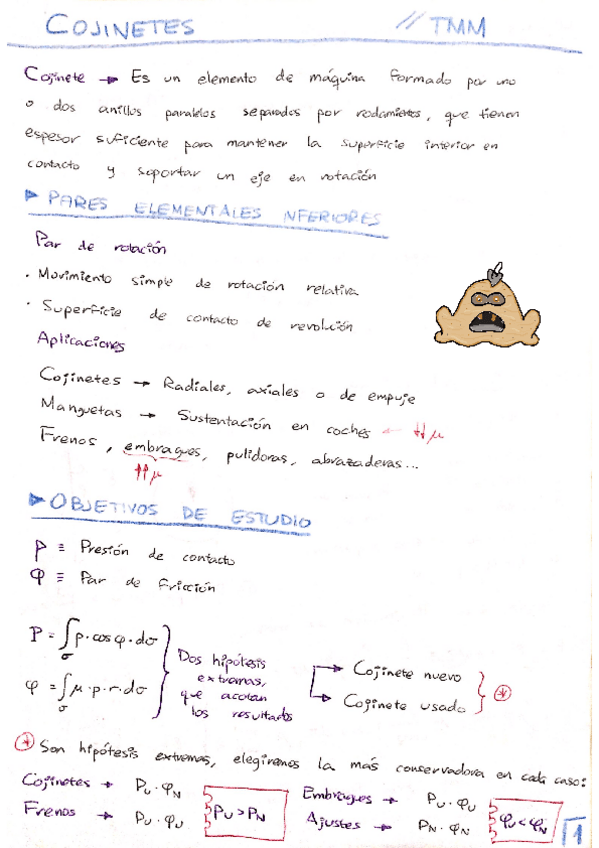 COJINETES // TMM
Cojinete → Es un elemento de máquina formado por uno
o dos anillos paralelos separados por rodamientos, que tienen
espesor suficiente para mantener la superficie interior en
contacto y soportar un eje en rotación
▶ PARES ELEMENTALES INFERIORES
Par de rotación
· Movimiento simple de rotación relativa
· Superficie de contacto de revolución
Aplicaciones
Cojinetes → Radiales, axiales o de empuje
Manguetas → Sustentación en coches ← ↓↓ μ
Frenos, embragues, pulidoras, abrazaderas...
↑↑ μ
▶ OBJETIVOS DE ESTUDIO
P ≡ Presión de contacto
φ ≡ Par de fricción
P = ∫σ p · cos φ · dσ
φ = ∫σ μ · p · r · dσ
Dos hipótesis
extremas,
que acotan
los resultados
Cojinete nuevo
Cojinete usado
*
* Son hipótesis extremas, elegiremos la más conservadora en cada caso:
Cojinetes → PU · φN
Frenos → PU · φU
PU > PN
Embragues → PU · φU
Ajustes → PN · φN
φU < φN
1